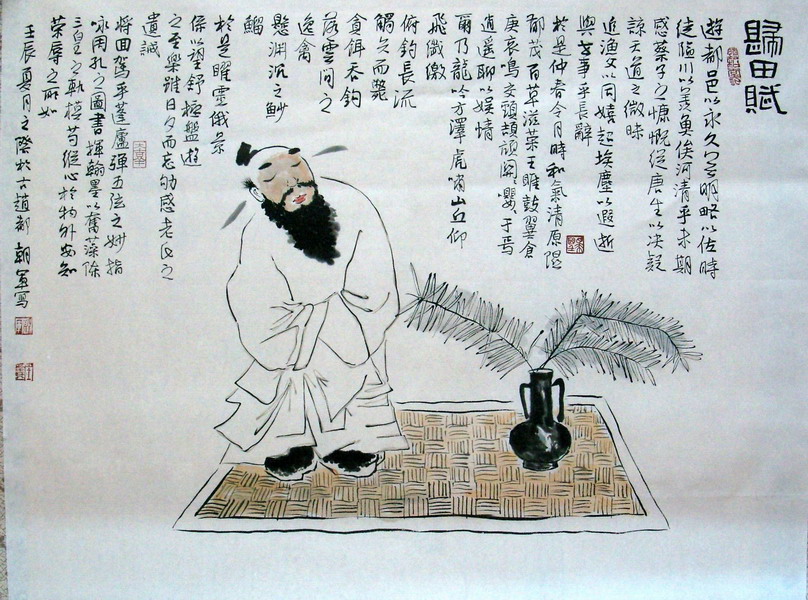 歸田賦
遊都邑以永久無明略以佐時
徒臨川以羨魚俟河清乎未期
感蔡子之慷慨從唐生以決疑
諒天道之微昧
追漁父以同嬉超埃塵以遐逝
與世事乎長辭
於是仲春令月時和氣清原隰
郁茂百草滋榮王雎鼓翼倉
庚哀鳴交頸頡頏關關嚶嚶于焉
逍遙聊以娛情
爾乃龍吟方澤虎嘯山丘仰
飛纖繳
俯釣長流
觸矢而斃
貪餌吞鉤
落雲間之
逸禽
懸淵沉之魦
鰡
於是曜靈俄景
係以望舒極盤遊
之至樂雖日夕而忘劬感老氏之
遺誡
將回駕乎蓬廬彈五弦之妙指
咏周孔之圖書揮翰墨以奮藻陳
三皇之軌模苟縱心於物外安知
榮辱之所如
壬辰夏月之際於古趙都朝軍寫